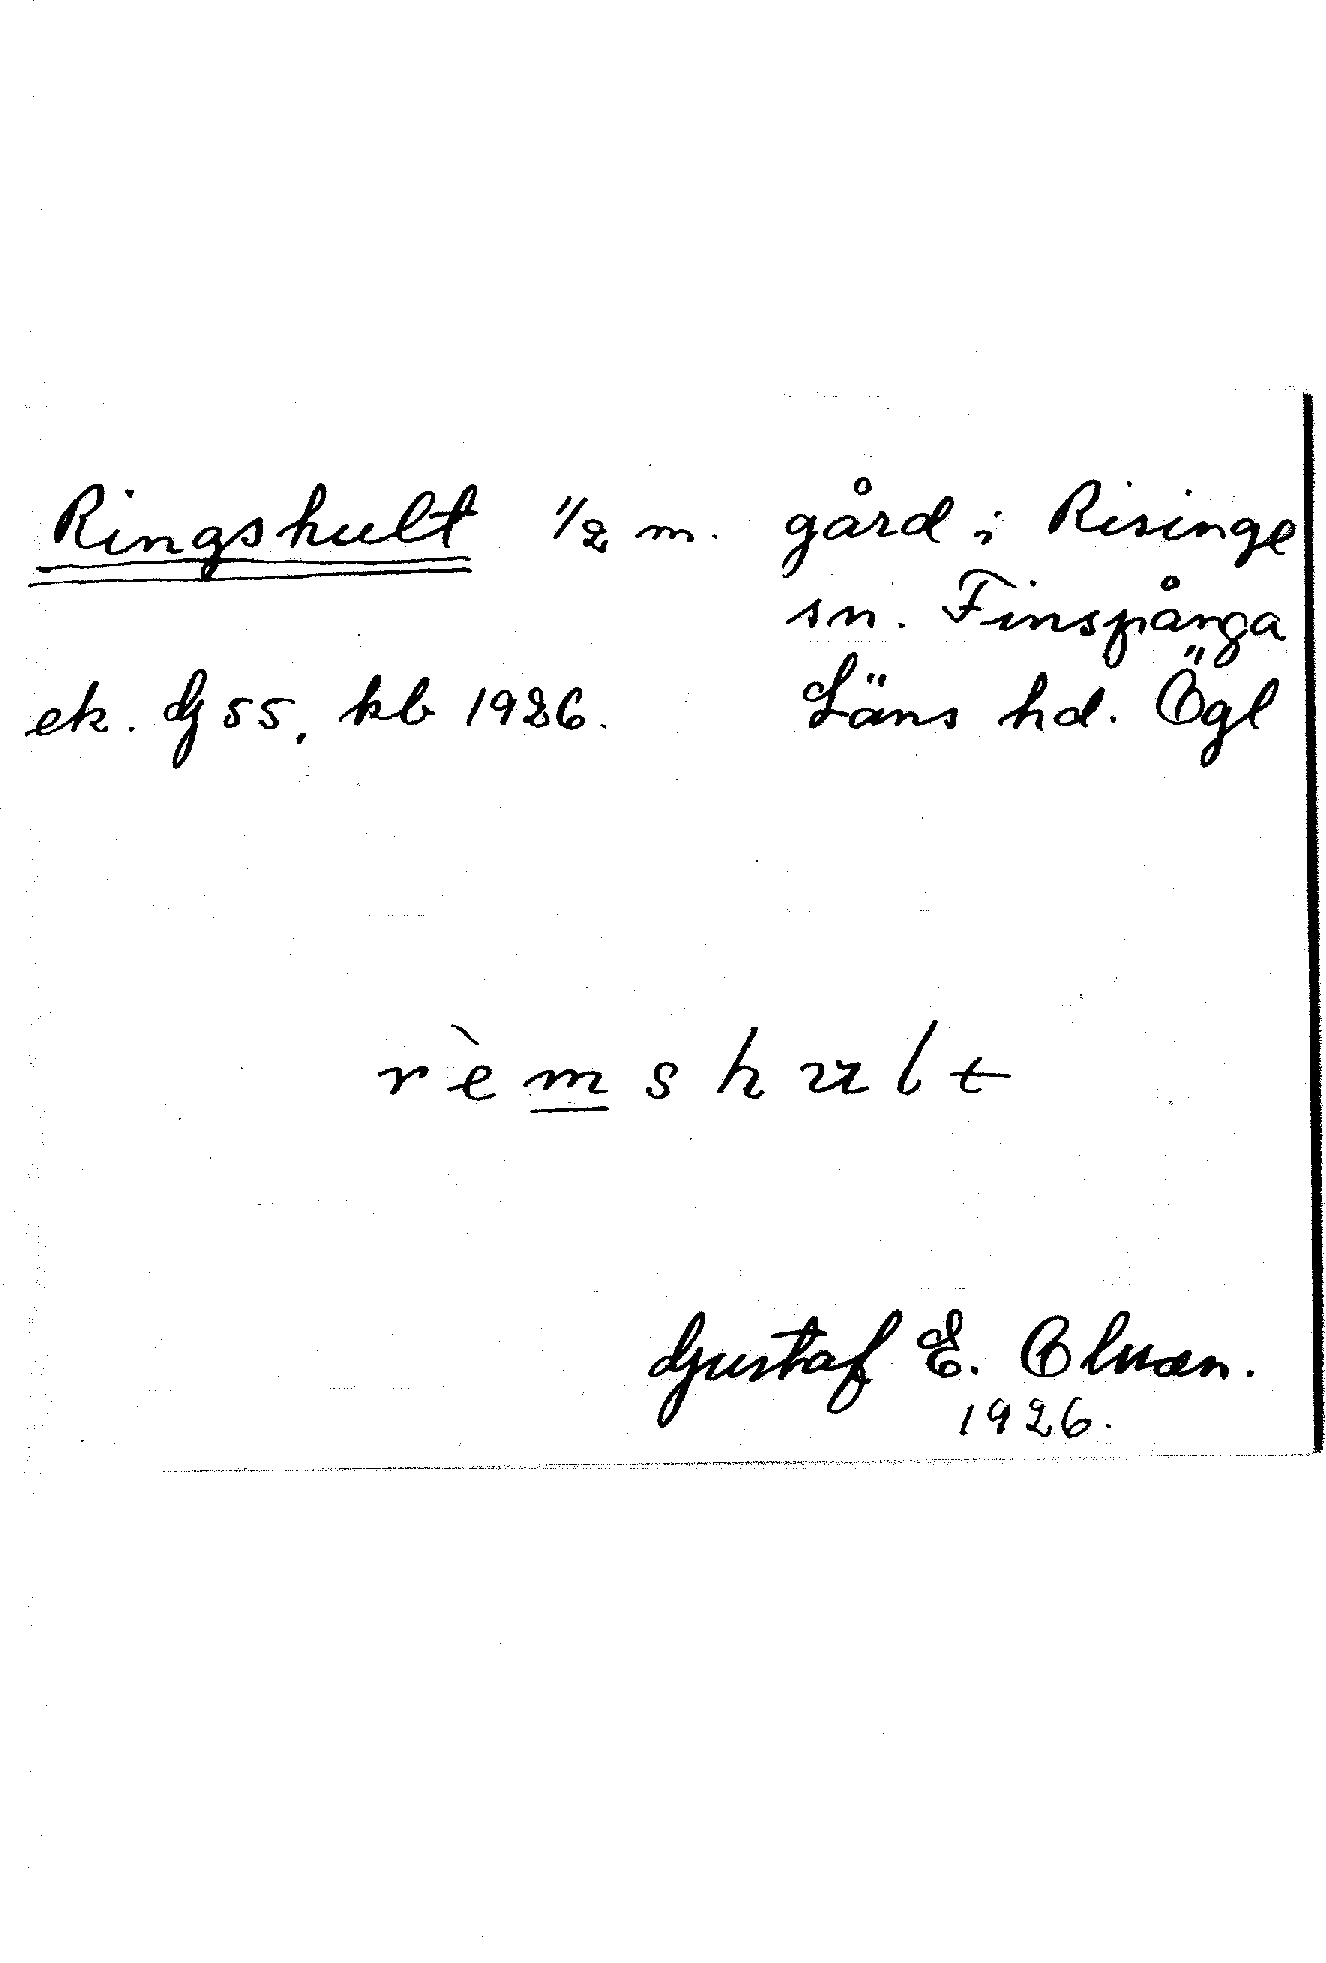 Ringshult 1/2 m. gård i Risinge
sn. Finspånga
ek. G 55, kb 1926. Läns hd. Ögl
rèmshult
Gustaf E. Olman.
1926.